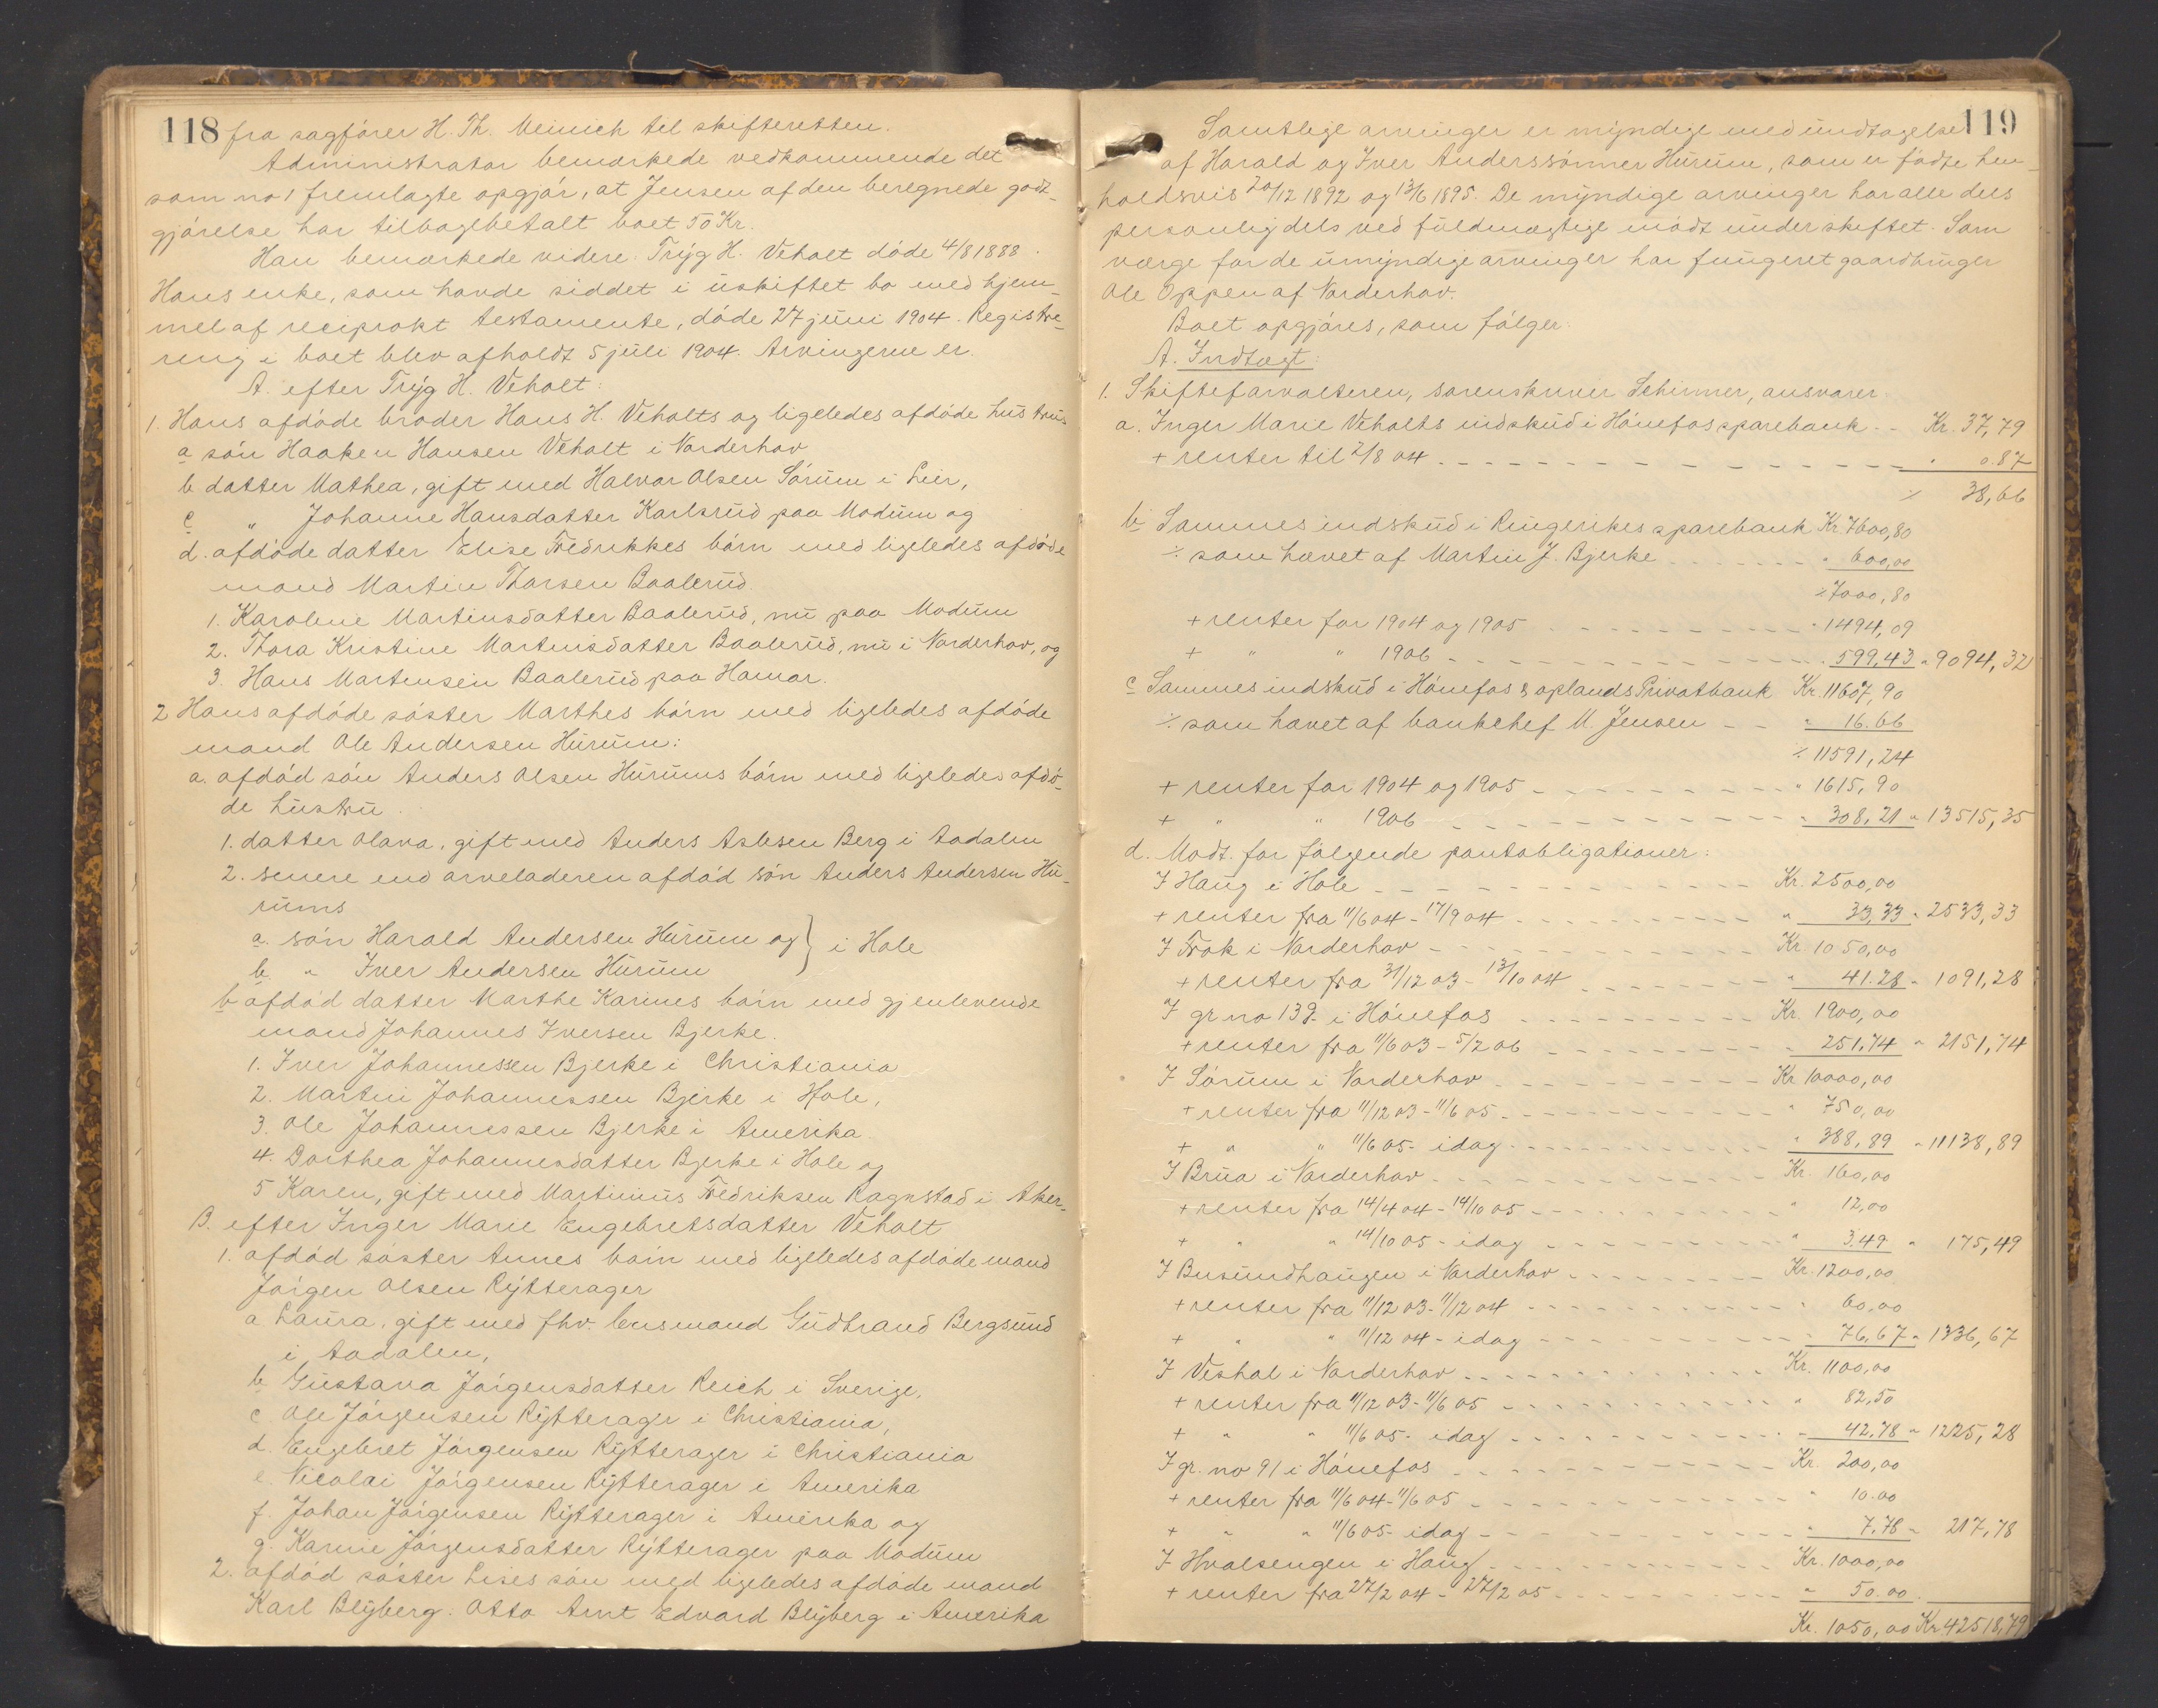 118 fra sagfører H. Th. Meinich til skifteretten.
Administrator bemærkede vedkommende det
som no 1 fremlagte opgjør, at Jensen af den beregnede godt-
gjørelse har tilbagebetalt boet 50 Kr.
Han bemærkede videre: Tryg H. Veholt døde 4/8 1888.
Hans enke, som havde siddet i uskiftet bo med hjem-
mel af reciprokt testamente, døde 27 juni 1904. Registre-
ring i boet blev afholdt 5 juli 1904. Arvingerne er:
A. efter Tryg H. Veholt:
1. Hans afdøde broder Hans H. Veholts og ligeledes afdøde hustrus
a søn Haaken Hansen Veholt i Norderhov
b datter Mathea, gift med Halvor Olsen Sørum i Lier,
c „ Johanne Hansdatter Karlsrud paa Modum og
d. afdøde datter Elise Fredrikkes børn med ligeledes afdøde
mand Martin Thorsen Baalerud.
1. Karoline Martinsdatter Baalerud, nu paa Modum
2. Thora Kristine Martinsdatter Baalerud, nu i Norderhov, og
3. Hans Martinsen Baalerud paa Hamar.
2 Hans afdøde søster Marthes børn med ligeledes afdøde
mand Ole Andersen Hurum:
a. afdød søn Anders Olsen Hurums børn med ligeledes afdø-
de hustru:
1. datter Olava, gift med Anders Aslesen Berg i Aadalen
2. senere end arveladeren afdød søn Anders Andersen Hu-
rums
a. søn Harald Andersen Hurum og } i Hole
b. „ Iver Andersen Hurum
b afdød datter Marthe Karines børn med gjenlevende
mand Johannes Iversen Bjerke.
1. Iver Johannessen Bjerke i Christiania
2. Martin Johannessen Bjerke i Hole,
3. Ole Johannessen Bjerke i Amerika.
4. Dorthea Johannesdatter Bjerke i Hole og
5 Karen, gift med Martinius Fredriksen Ragnstad i Aker.
B. efter Inger Marie Engebretsdatter Veholt
1. afdød søster Annes børn med ligeledes afdøde mand
Jørgen Olsen Rytterager
a Laura, gift med fhv. lensmand Gudbrand Bergsund
i Aadalen,
b Gustava Jørgensdatter Reich i Sverige,
c. Ole Jørgensen Rytterager i Christiania,
d. Engebret Jørgensen Rytterager i Christiania
e. Nicolai Jørgensen Rytterager i Amerika
f. Johan Jørgensen Rytterager i Amerika og
g. Karine Jørgensdatter Rytterager paa Modum
2. afdød søster Lises søn med ligeledes afdøde mand
Karl Blyberg: Otto Arnt Edvard Blyberg i Amerika
119
Samtlige arvinger er myndige med undtagelse
af Harald og Iver Anderssønner Hurum, som er fødte hen-
holdsvis 20/12 1892 og 13/6 1895. De myndige arvinger har alle dels
personlig dels ved fuldmægtige mødt under skiftet. Som
værge for de umyndige arvinger har fungeret gaardbruger
Ole Oppen af Norderhov.
Boet opgjøres, som følger:
A. Indtægt:
1. Skifteforvalteren, sorenskriver Schirmer, ansvarer:
a. Inger Marie Veholts indskud i Hønefos sparebank - - Kr. 37,79
+ renter til 2/8 04 - - - „ 0.87
⁒ 38,66
b. Sammes indskud i Ringerikes sparebank Kr. 7600,80
⁒ som hævet af Martin J. Bjerke - - - „ 600,00
⁒ 7000,80
+ renter for 1904 og 1905 - - - „ 1494,09
+ „ „ 1906 - - - „ 599,43 „ 9094,32
c Sammes indskud i Hønefos & oplands Privatbank Kr. 11607,90
⁒ som hævet af bankchef M. Jensen - - „ 16.66
⁒ 11591,24
+ renter for 1904 og 1905 - - - „ 1615,90
+ „ „ 1906 - - - „ 308,21 „ 13515,35
d. Modt. for følgende pantobligationer:
I Haug i Hole - - - Kr. 2500,00
+ renter fra 11/6 04 - 17/9 04 - - - „ 33,33 „ 2533,33
I Trok i Norderhov - - - Kr. 1050,00
+ renter fra 31/12 03 - 13/10 04 - - - „ 41.28 „ 1091,28
I gr no 139 i Hønefos - - - Kr. 1900,00
+ renter fra 11/6 03 - 5/2 06 - - - 251,74 „ 2151,74
I Sørum i Norderhov - - - Kr 10000,00
+ renter fra 11/12 03 - 11/6 05 - - - „ 750,00
+ „ „ 11/6 05 - idag - - - „ 388,89 „ 11138,89
I Brua i Norderhov - - - Kr. 160,00
+ renter fra 14/4 04 - 14/10 05 - - - „ 12,00
+ „ „ 14/10 05 - idag - - - „ 3.49 „ 175,49
I Busundhaugen i Norderhov - - - Kr. 1200,00
+ renter fra 11/12 03 - 11/12 04 - - - „ 60,00
+ „ „ 11/12 04 - idag - - - „ 76,67 „ 1336,67
I Veshol i Norderhov - - - Kr. 1100,00
+ renter fra 11/12 03 - 11/6 05 - - - „ 82,50
+ „ „ 11/6 05 - idag - - - „ 42,78 „ 1225,28
I gr. no 91 i Hønefos - - - Kr. 200,00
+ renter fra 11/6 04 - 11/6 05 - - - „ 10.00
+ „ „ 11/6 05 - idag - - - „ 7.78 „ 217,78
I Hvalsengen i Haug - - - Kr. 1000,00
+ renter fra 27/2 04 - 27/2 05 - - - „ 50.00
Kr. 1050,00 Kr. 42518,79